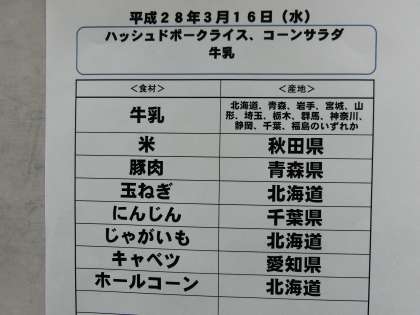 平成28年3月16日（水）
ハッシュドポークライス、コーンサラダ
牛乳
＜食材＞ ＜産地＞
牛乳 北海道、青森、岩手、宮城、山
形、埼玉、栃木、群馬、神奈川、
静岡、千葉、福島のいずれか
米 秋田県
豚肉 青森県
玉ねぎ 北海道
にんじん 千葉県
じゃがいも 北海道
キャベツ 愛知県
ホールコーン 北海道